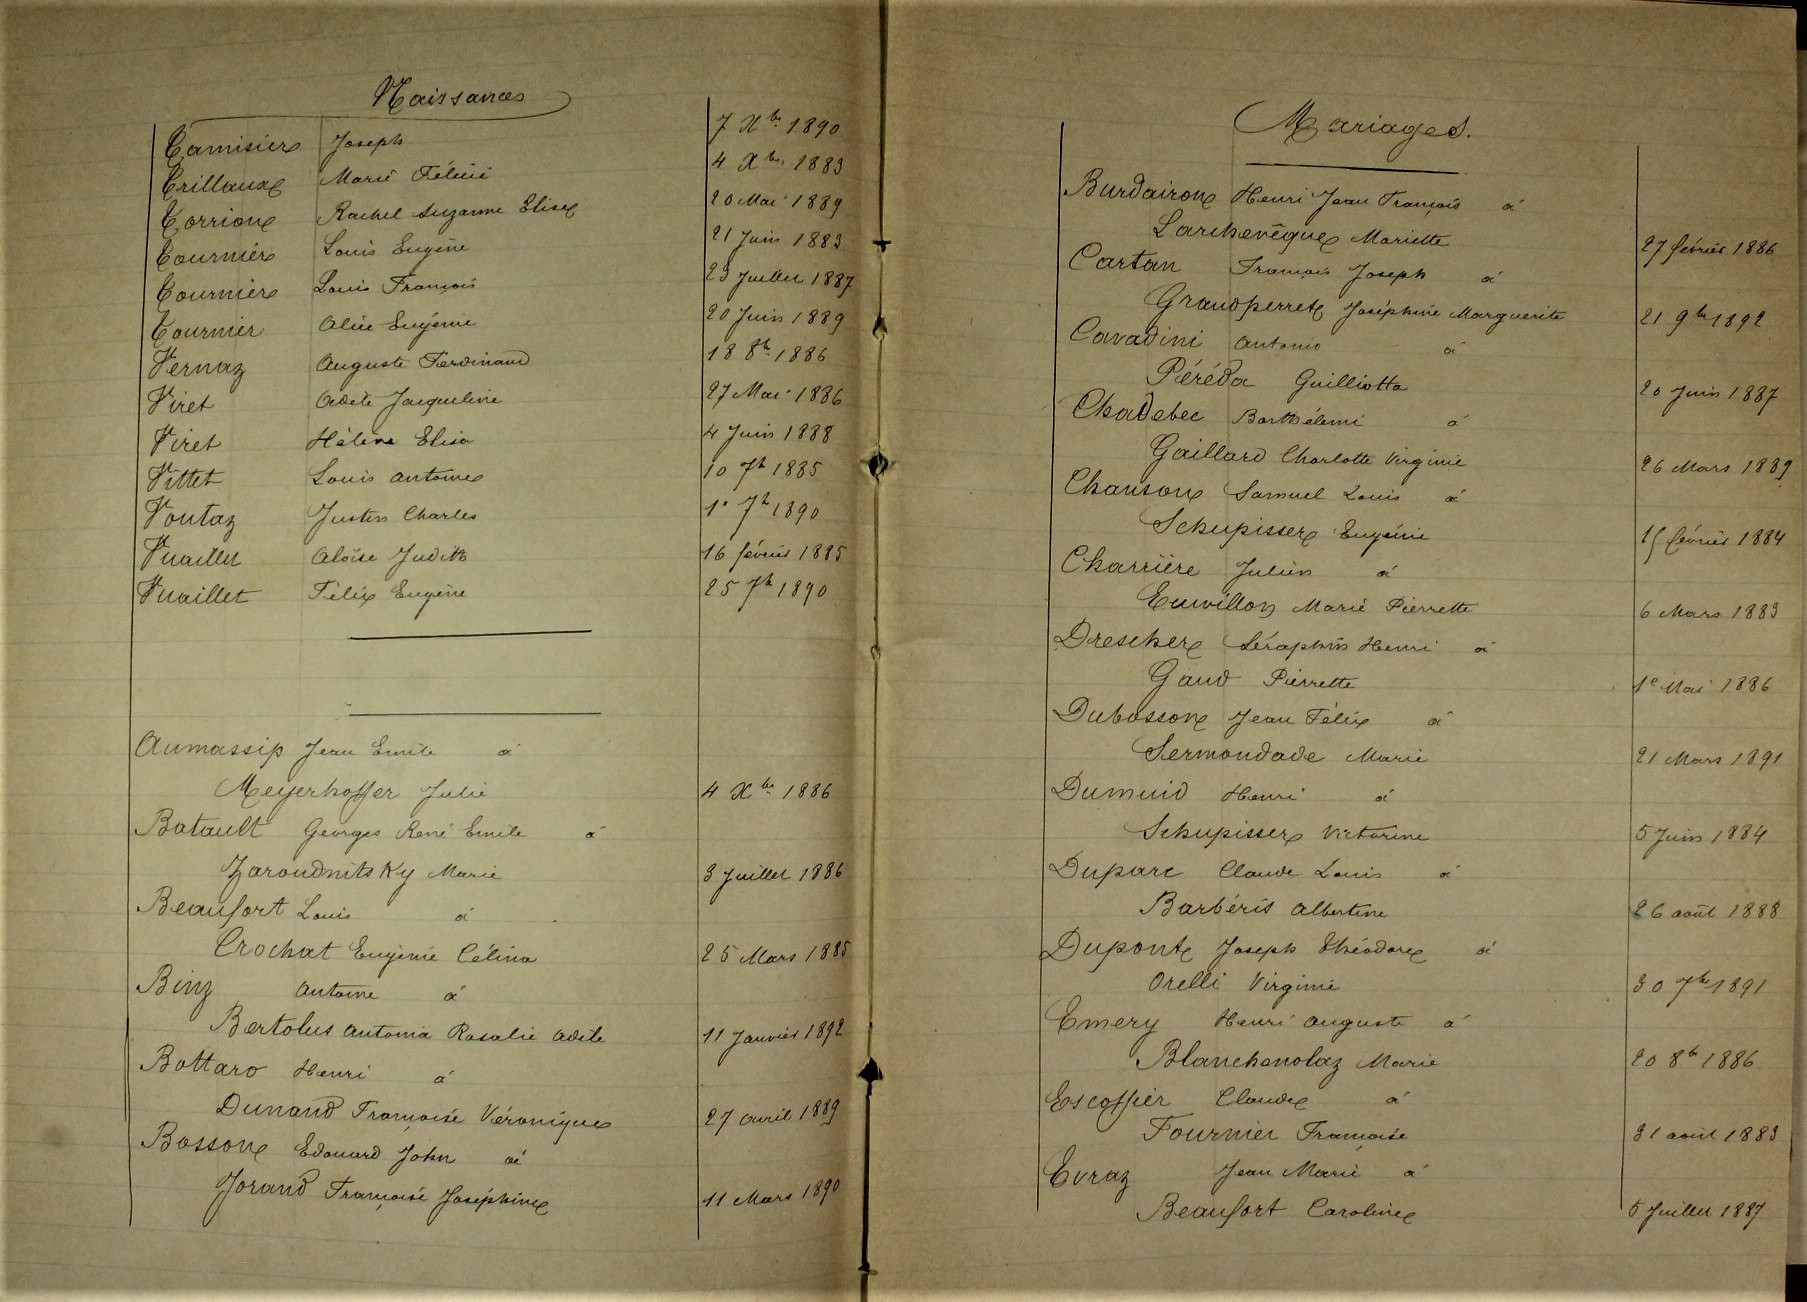 Naissances
Tamisier Joseph 7 Xbre 1890
Trillaux Marie Félicie 4 Xbre 1883
Torrion Rachel Suzanne Elise 20 Mai 1889
Tournier Louis Eugène 21 Juin 1883
Tournier Louis François 23 Juillet 1887
Tournier Alice Eugénie 20 Juin 1889
Vernaz Auguste Ferdinand 18 8b 1886
Viret Adèle Jacqueline 27 Mai 1886
Viret Hélène Elisa 4 Juin 1888
Vittet Louis Antoine 10 7b 1885
Voutaz Justin Charles 1er 7b 1890
Vuaillet Aloïse Judith 16 février 1885
Vuaillet Félix Eugène 25 7b 1890
Aumassip Jean Emile à
Meyerhoffer Julie 4 Xbre 1886
Batault Georges René Emile à
Zaroudnitsky Marie 3 Juillet 1886
Beaufort Louis à
Crochat Eugénie Célina 25 Mars 1885
Binz Antoine à
Bertolus Antonia Rosalie Adèle 11 Janvier 1892
Bottaro Henri à
Dunand Françoise Véronique 27 Avril 1889
Bosson Edouard John à
Jorand Françoise Joséphine 11 Mars 1890
Mariages.
Burdairon Henri Jean François à
Larchevêque Mariette 27 février 1886
Cartan François Joseph à
Grandperret Joséphine Marguerite 21 9br 1892
Cavadini Antonio à
Péréda Guilliotta 20 Juin 1887
Chadebec Barthélemi à
Gaillard Charlotte Virginie 26 Mars 1889
Chanson Samuel Louis à
Schupisser Eugénie 15 février 1884
Charrière Julien à
Euvillon Marie Pierrette 6 Mars 1883
Drescher Séraphin Henri à
Gand Pierrette 1e Mai 1886
Dubosson Jean Félix à
Sermondade Marie 21 Mars 1891
Dumuid Henri à
Schupisser Victorine 5 Juin 1884
Duparc Claude Louis à
Barbéris Albertine 26 août 1888
Dupont Joseph Théodore à
Orelli Virginie 30 7bre 1891
Emery Henri Auguste à
Blanchenolaz Marie 20 8b 1886
Escoffier Claude à
Fournier Françoise 31 août 1883
Evraz Jean Marie à
Beaufort Caroline 5 Juillet 1887